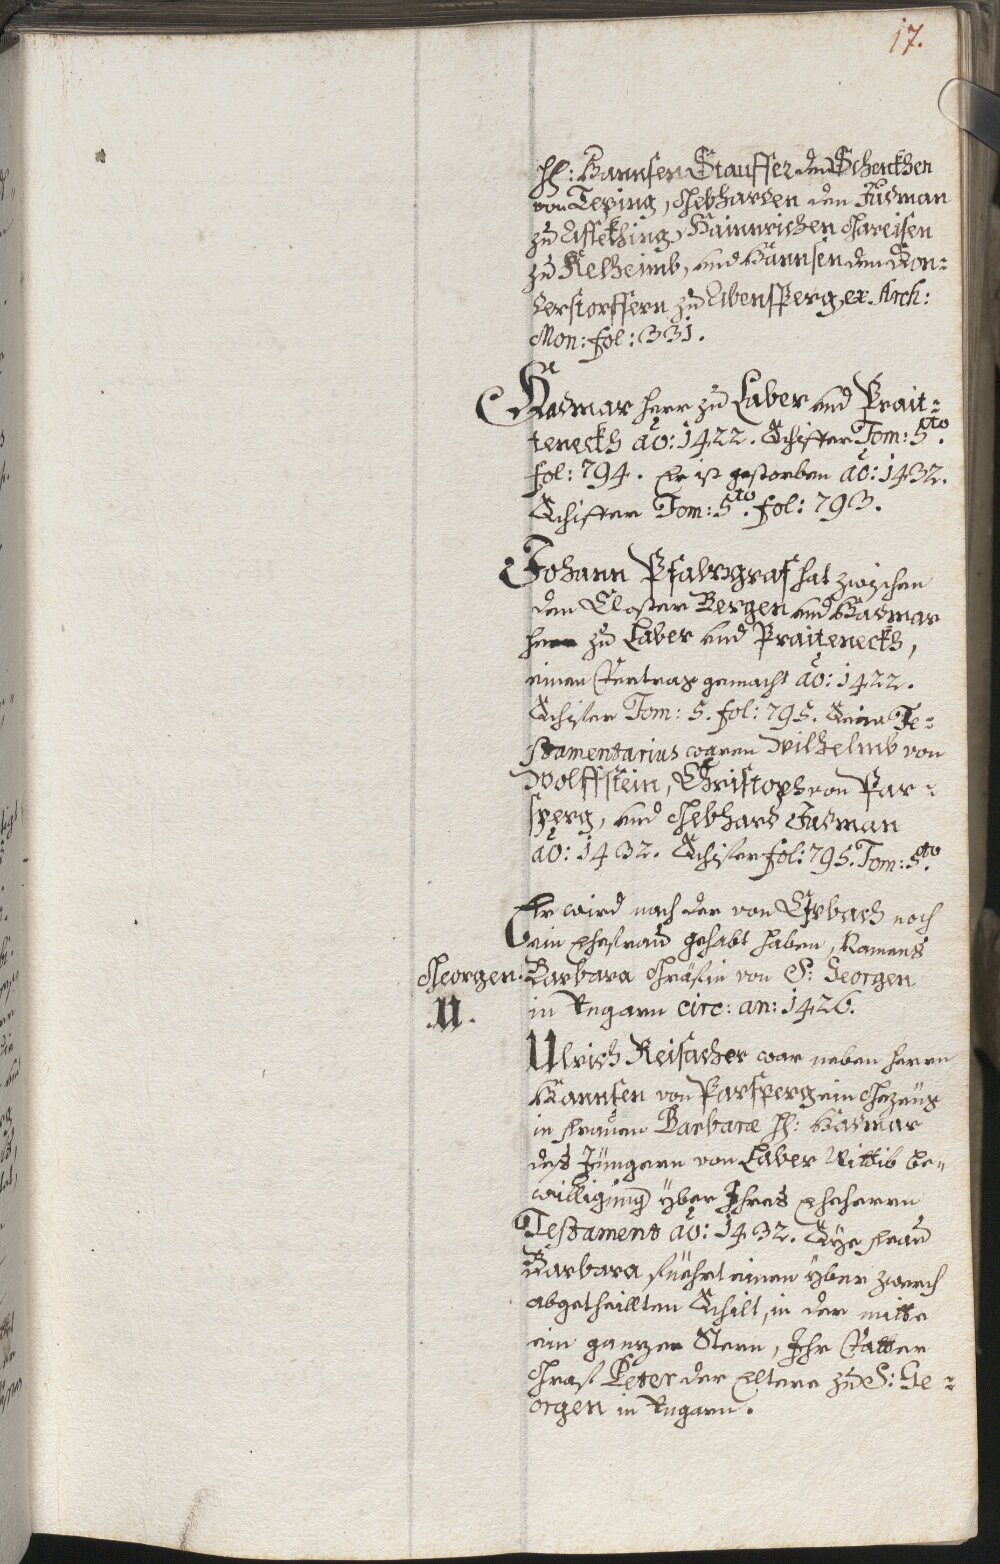 17.
H: Hannsen Stauffer den Schenckhen
von Teging, Gebharden den Judman
zu Affekhing, Hainrichen Chreisen
zu Kelheimb, und Hannsen den Son:
derstorffern zu Abensperg, ex Arch:
Mon: fol: 331.
Hadmar Herr zu Laber und Prait=
teneckh ao: 1422. Schiffer Tom: 5to.
fol: 794. Er ist gestorben ao: 1432.
Schiffer Tom: 5to. fol: 793.
Johann Pfalzgraf hat zwischen
den Closter Bergen und Hadmar
Herrn zu Laber und Praiteneckh,
einen Vertrag gemacht ao: 1422.
Schifer Tom: 5. fol: 795. Seine Te=
stamentarius waren Wilhelmb von
Wolffstein, Christoph von Par=
sperg, und Gebhard Judman
ao: 1432. Schifer fol: 795. Tom: 5to.
Er wird nach der von Erbach noch
ein Ehefrau gehabt haben, Namens
Georgen. Barbara Gräfin von S: Georgen
.U. in Ungarn circ: an: 1426.
Ulrich Reisacher war neben Herrn
Hannsen von Parsperg ein Gezeug
in Frauen Barbaræ H: Hadmar
des Jüngern von Laber Wittib be„
willigung yber Ihres Eheherrn
Testament ao: 1432. Dise Frau
Barbara fuehrt einen yber zwerch
abgetheillten Schilt, in der mitte
ein ganzer Stern, Ihr Vatter
Graf Peter der Eltere zu S: Ge=
orgen in Ungarn.